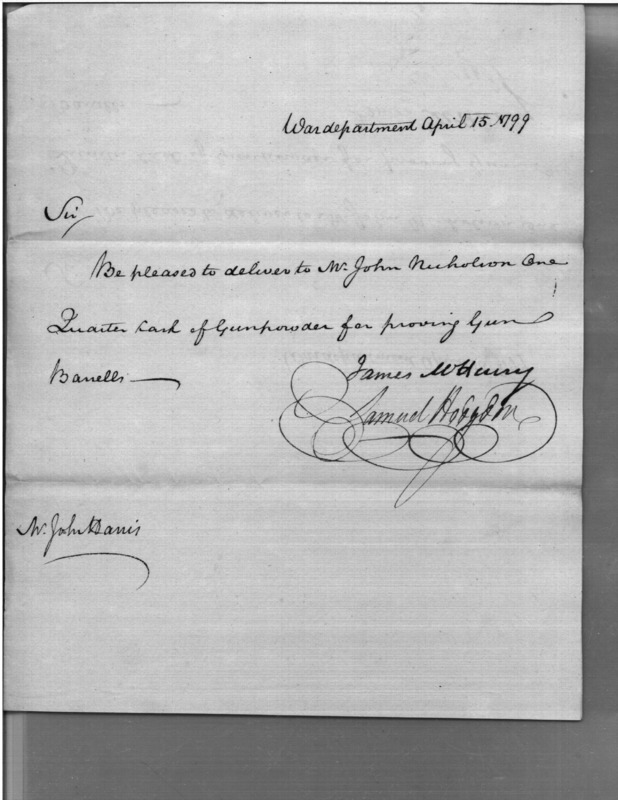 War department April 15. 1799
Sir
Be pleased to deliver to Mr. John Nicholson One
Quarter Cask of Gunpowder for proving Gun
Barrells
James McHenry
Samuel Hodgdon
Mr. John Harris